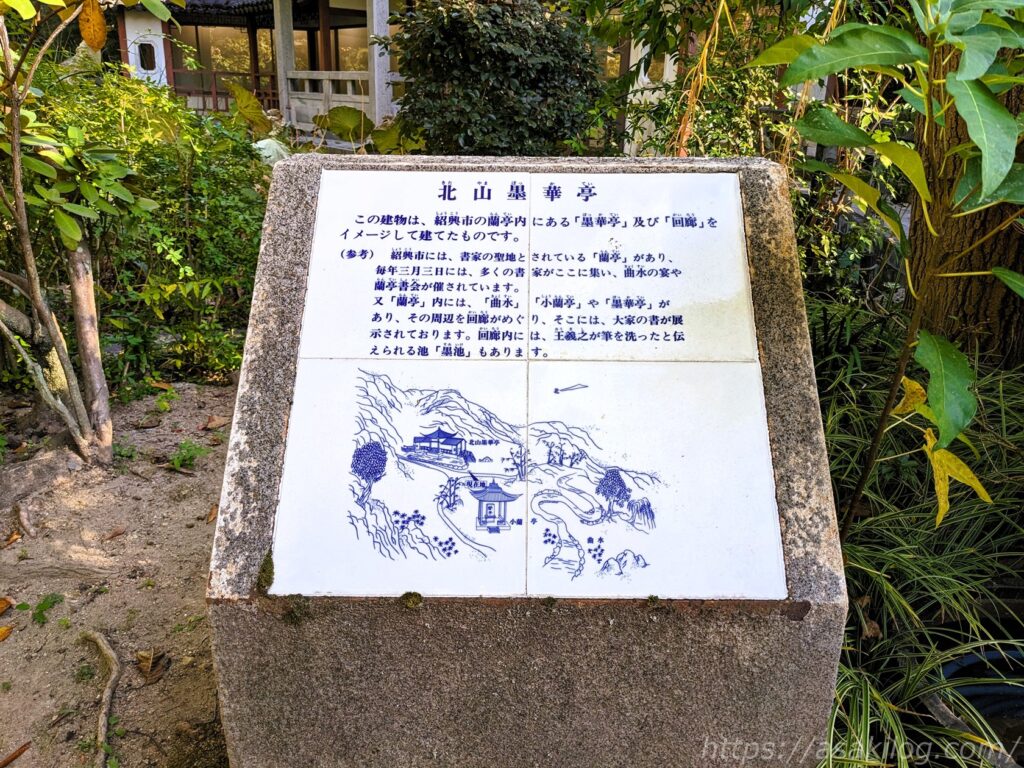 北山墨華亭
この建物は、紹興市の蘭亭内にある「墨華亭」及び「回廊」を
イメージして建てたものです。
(参考) 紹興市には、書家の聖地とされている「蘭亭」があり、
毎年三月三日には、多くの書家がここに集い、曲水の宴や
蘭亭書会が催されています。
又「蘭亭」内には、「曲水」「小蘭亭」や「墨華亭」が
あり、その周辺を回廊がめぐり、そこには、大家の書が展
示されております。回廊内には、王羲之が筆を洗ったと伝
えられる池「墨池」もあります。
北山墨華亭
現在地
小蘭亭
曲水
https://asakilog.com/